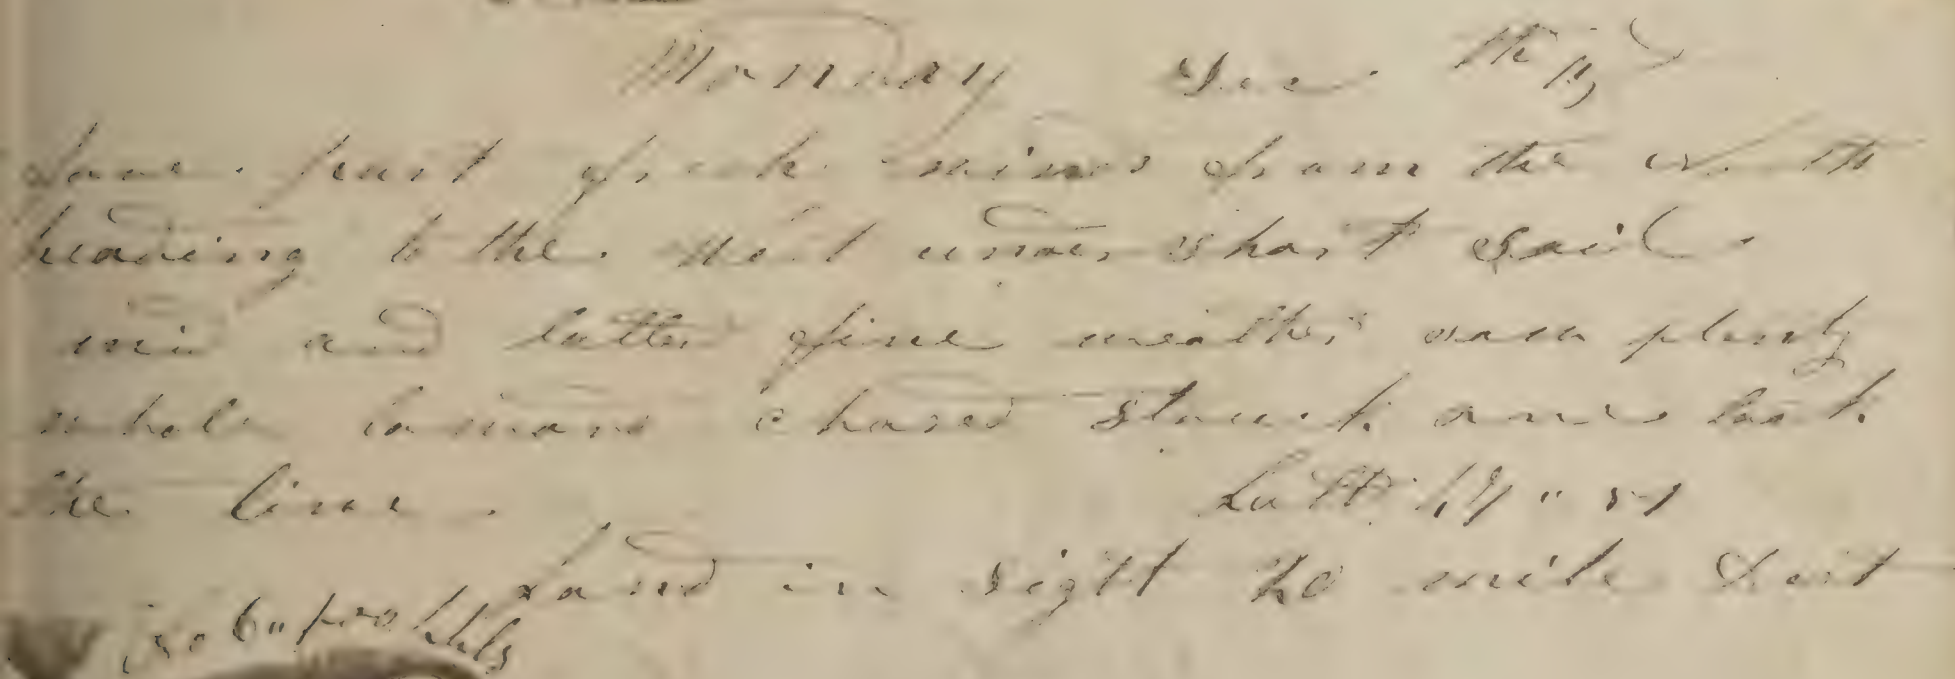 Monday Dec the 11
fore part fresh winds from the North
heading to the West under short Sail
mid and latter fine weather saw plenty
whale lowered chased Struck and lost
the line. Latt
Land in sight 20 mile Dist